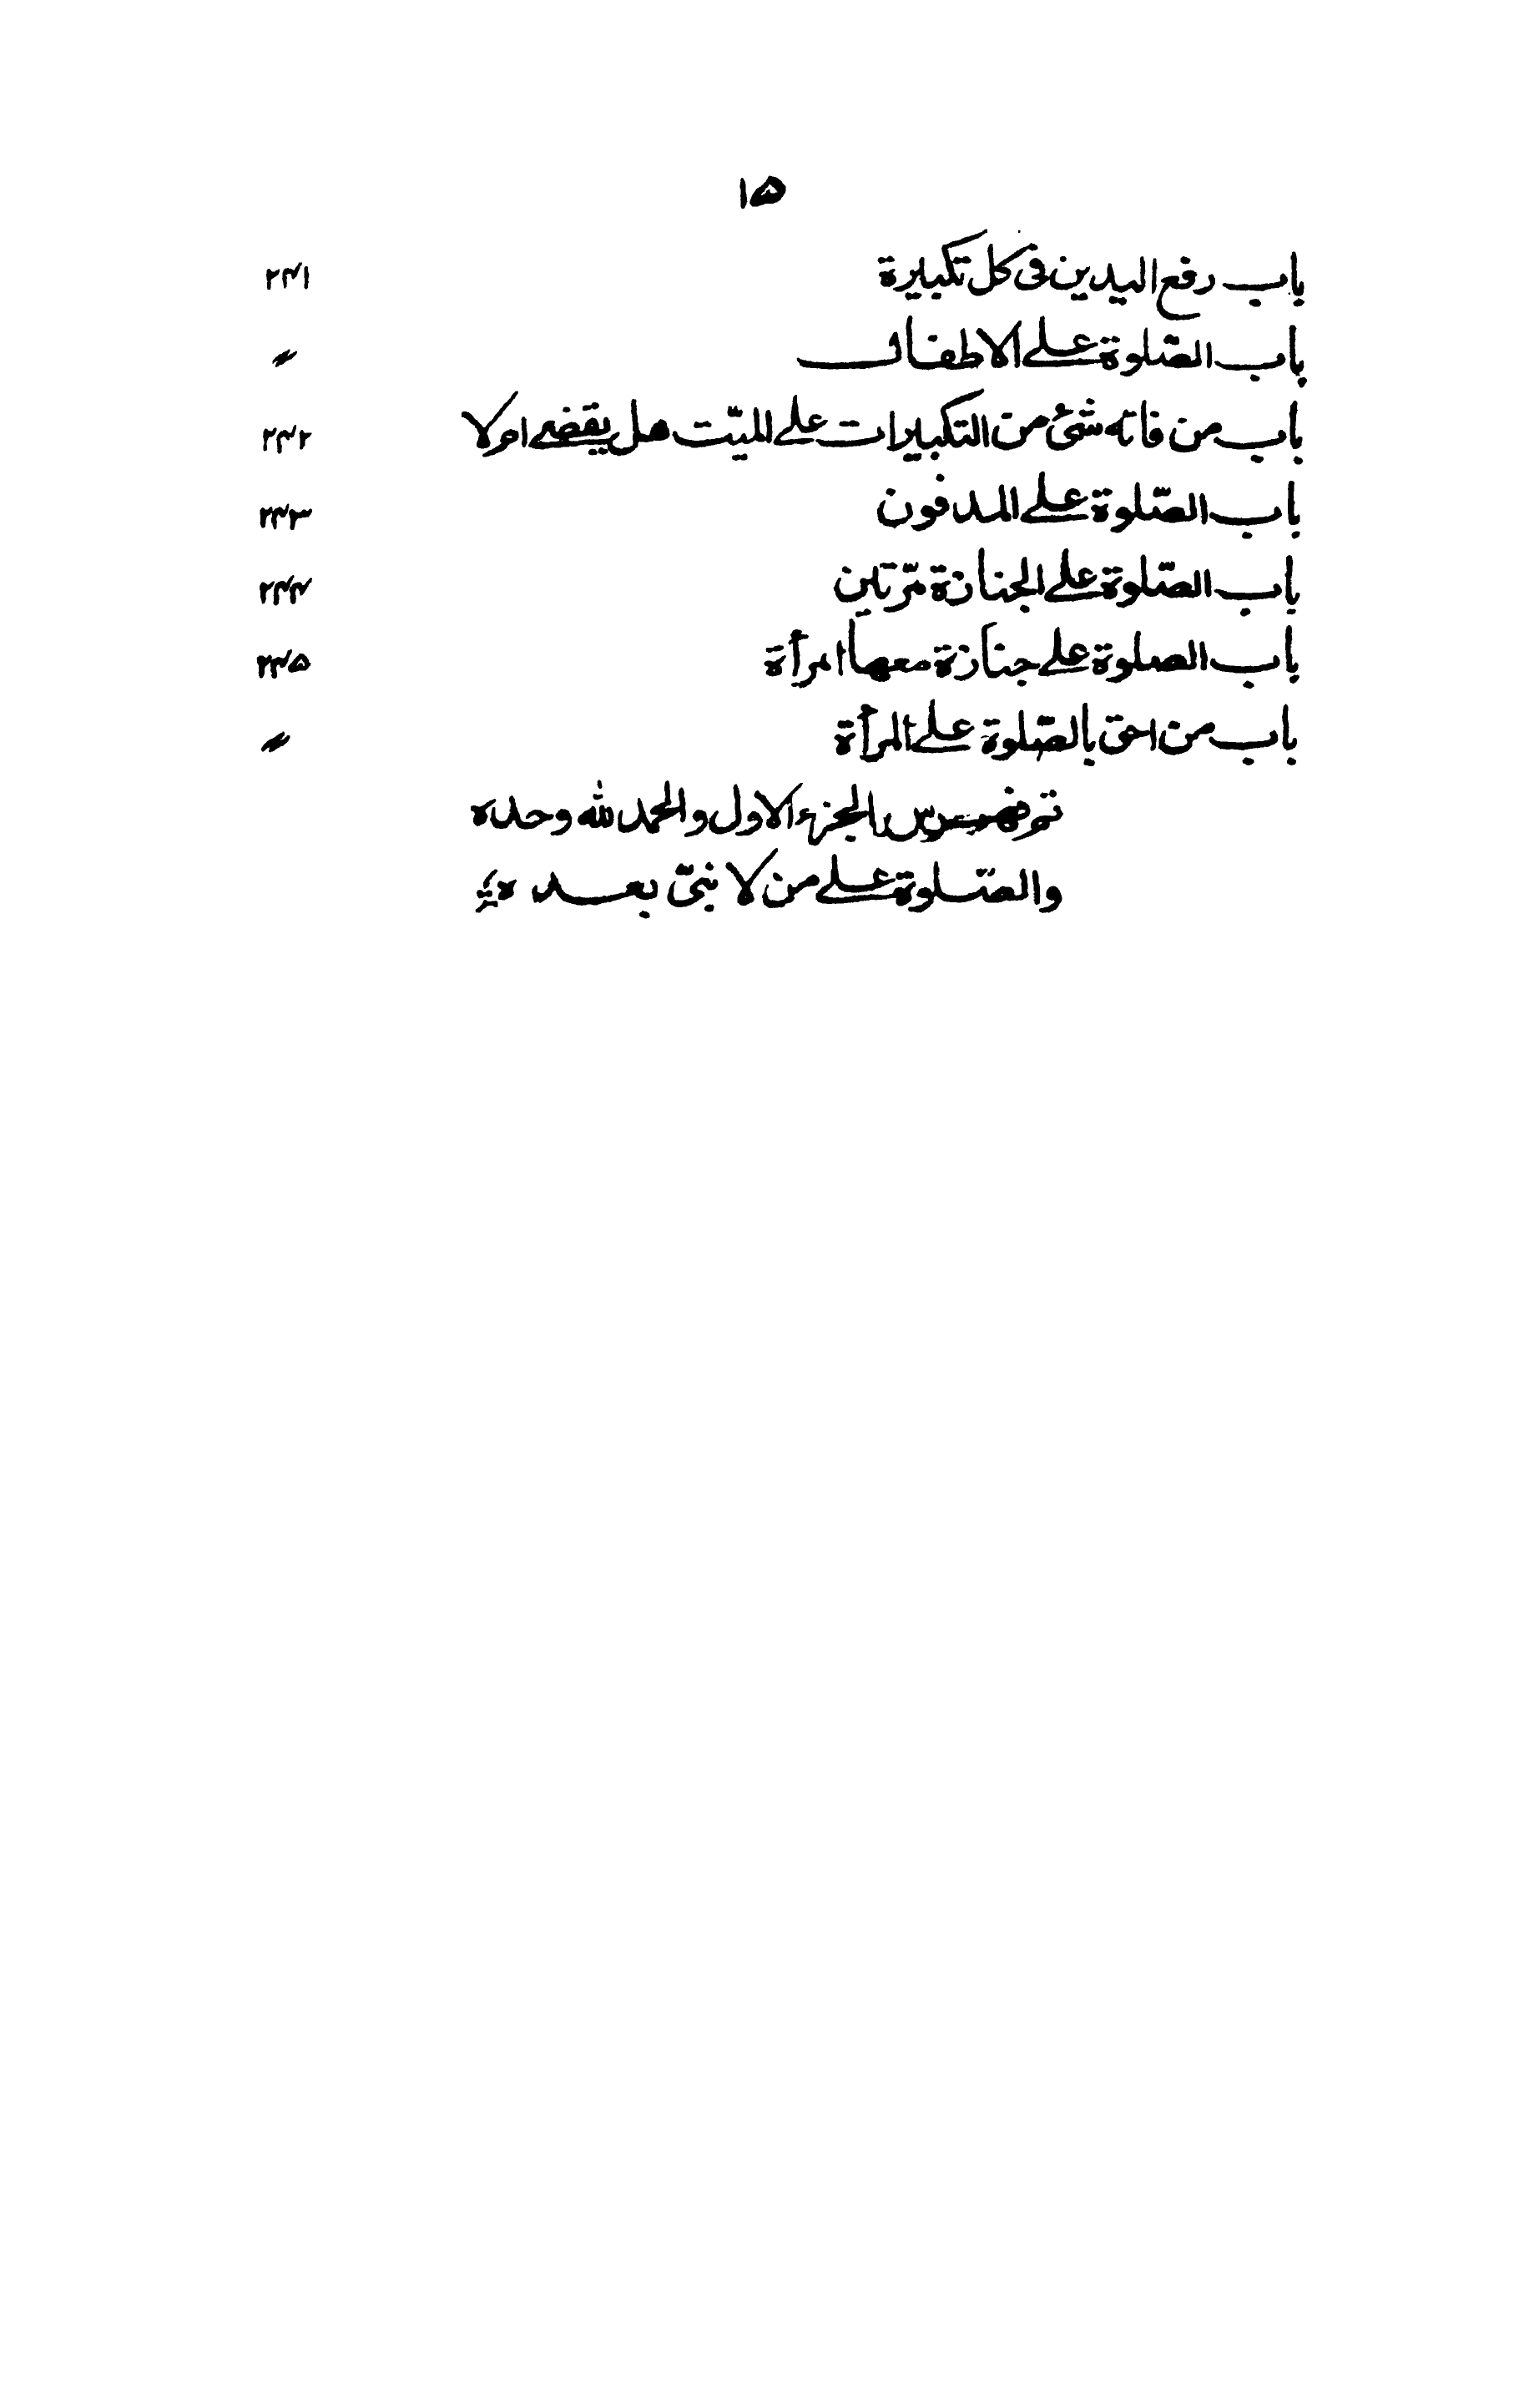 ۱۵
باب رفع اليدين فى كل تكبيرة ۲۴۱
باب الصّلوة على الاطفال 〃
باب من فاته شئ من التكبيرات على الميّت هل يقضى ام لا ۲۴۲
باب الصّلوة على المدفون ۲۴۳
باب الصّلوة على الجنازة مرّتين ۲۴۴
باب الصلوة على جنازة معها امرأة ۲۴۵
باب من احق بالصّلوة على المرأة 〃
تم فهرس الجزء الاول والحمد لله وحده
والصّلوة على من لا نبىّ بعده